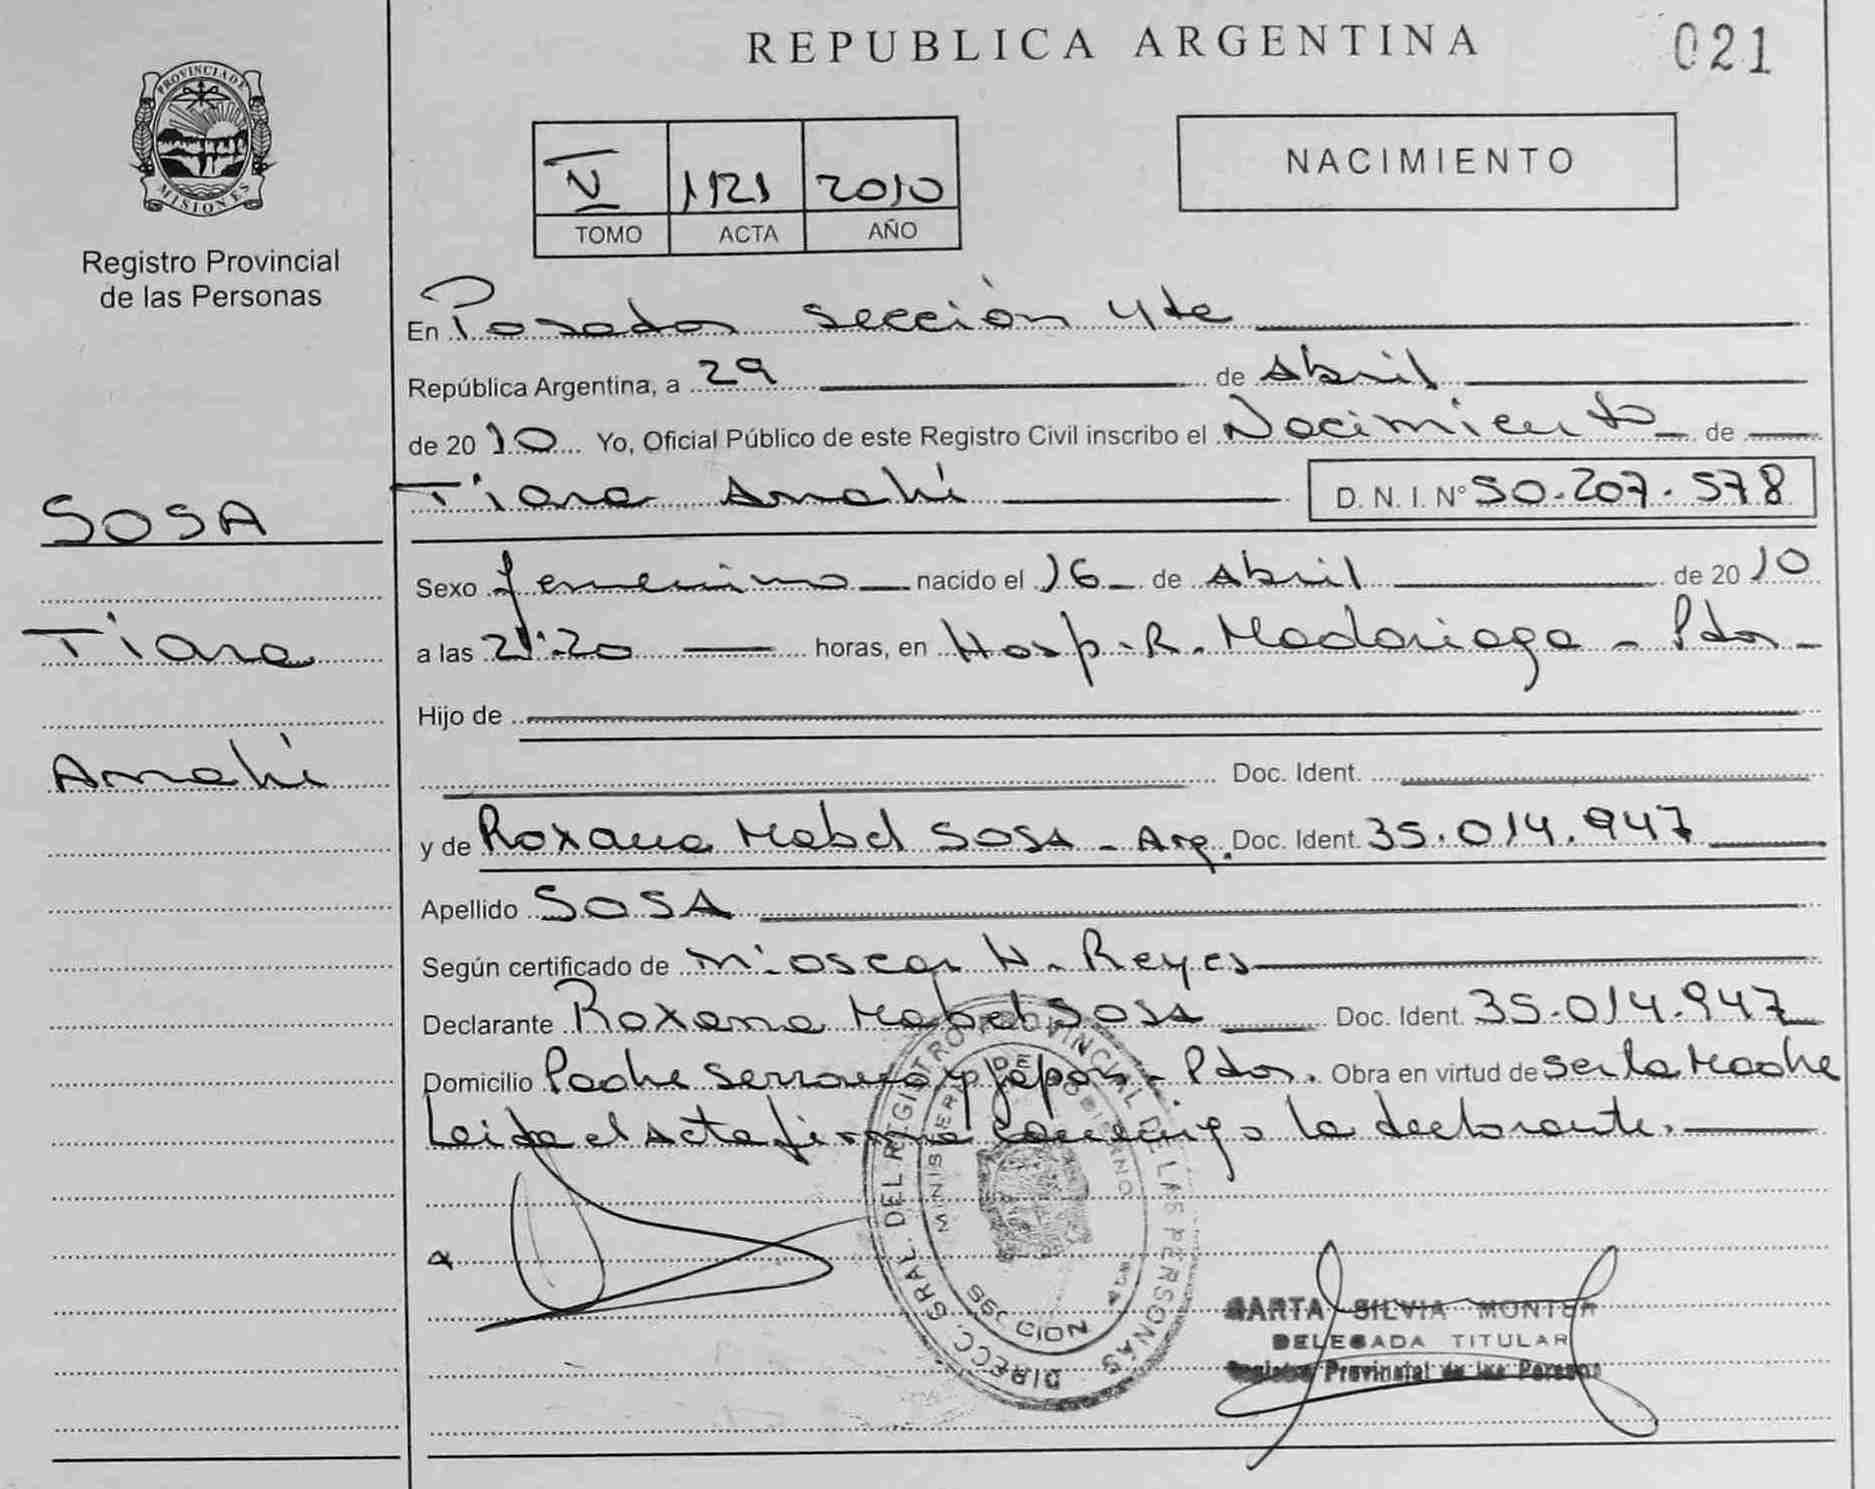 REPUBLICA ARGENTINA
021
PROVINCIA DE
MISIONES
Registro Provincial
de las Personas
V 1121 2010
TOMO ACTA AÑO
NACIMIENTO
En Posadas Sección 4ta
República Argentina, a 29 de Abril
de 2010 Yo, Oficial Público de este Registro Civil inscribo el Nacimiento de
Tiara Anahí D. N. I. Nº 50.207.578
SOSA
Tiara
Anahí
Sexo femenino nacido el 16 de Abril de 2010
a las 21:20 horas, en Hosp. R. Madariaga - Pdas -
Hijo de
Doc. Ident.
y de Roxana Mabel SOSA - Arg. Doc. Ident. 35.014.947
Apellido SOSA
Según certificado de Oscar H. Reyes
Declarante Roxana Mabel SOSA Doc. Ident. 35.014.947
Domicilio Padre Serrano y Japón - Pdas. Obra en virtud de Ser la Madre
Leida el Acta firma conmigo la declarante.
DIRECC. GRAL. DEL REGISTRO PROVINCIAL DE LAS PERSONAS
MINISTERIO DE GOBIERNO
SILVIA
DELEGADA TITULAR
Registro Provincial de las Personas